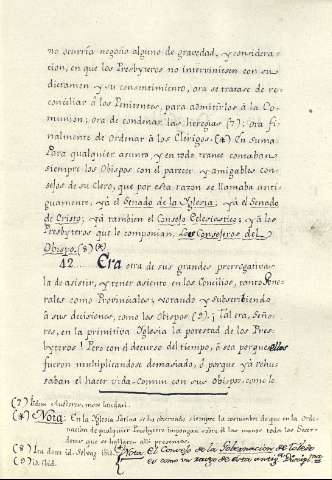 no ocurria negocio alguno de gravedad, y considera-
cion, en que los Presbyteros no interviniesen con su
dictamen y su consentimiento, ora se tratase de re-
conciliar á los Penitentes, para admitirlos á la Co-
munion; ora de condenar las heregias (7); ora fi-
nalmente de ordenar á los Clérigos. (*) En suma:
Para qualquier asunto, y en todo trance contaban
siempre los Obispos con el parecer y amigables con-
sejos de su Clero, que por esta razon se llamaba anti-
guamente, ya el Senado de la Iglesia; ya el Senado
de Cristo; ya tambien el Consejo Eclesiastico; y á los
Presbyteros que le componian, Los Consejeros del
Obispo (8) (*)
42. Era otra de sus grandes prerrogativas
la de asistir, y tener asiento en los Concilios, tanto Gene-
rales como Provinciales; votando y subscribiendo
á sus decisiones, como los Obispos (9). ¡Tal era, Seño-
res, en la primitiva Iglesia la potestad de los Pres-
byteros! Pero con el decurso del tiempo, ó sea porque ellos
fueron multiplicandose demasiado, ó porque ya rehu-
saban el hacer vida-comun con sus Obispos, como lo
(7) Idem
(*) Nota: En la Iglesia Latina se ha observado siempre la costumbre de que en la Orde-
nacion de qualquier Presbytero impongan sobre él las manos todos los Sacer-
dotes que se hallaren allí presentes.
(8) ibid.
(9) ibid.
Nota el Consejo de la Gobernacion de Toledo
es como un rasgo de esta antig.